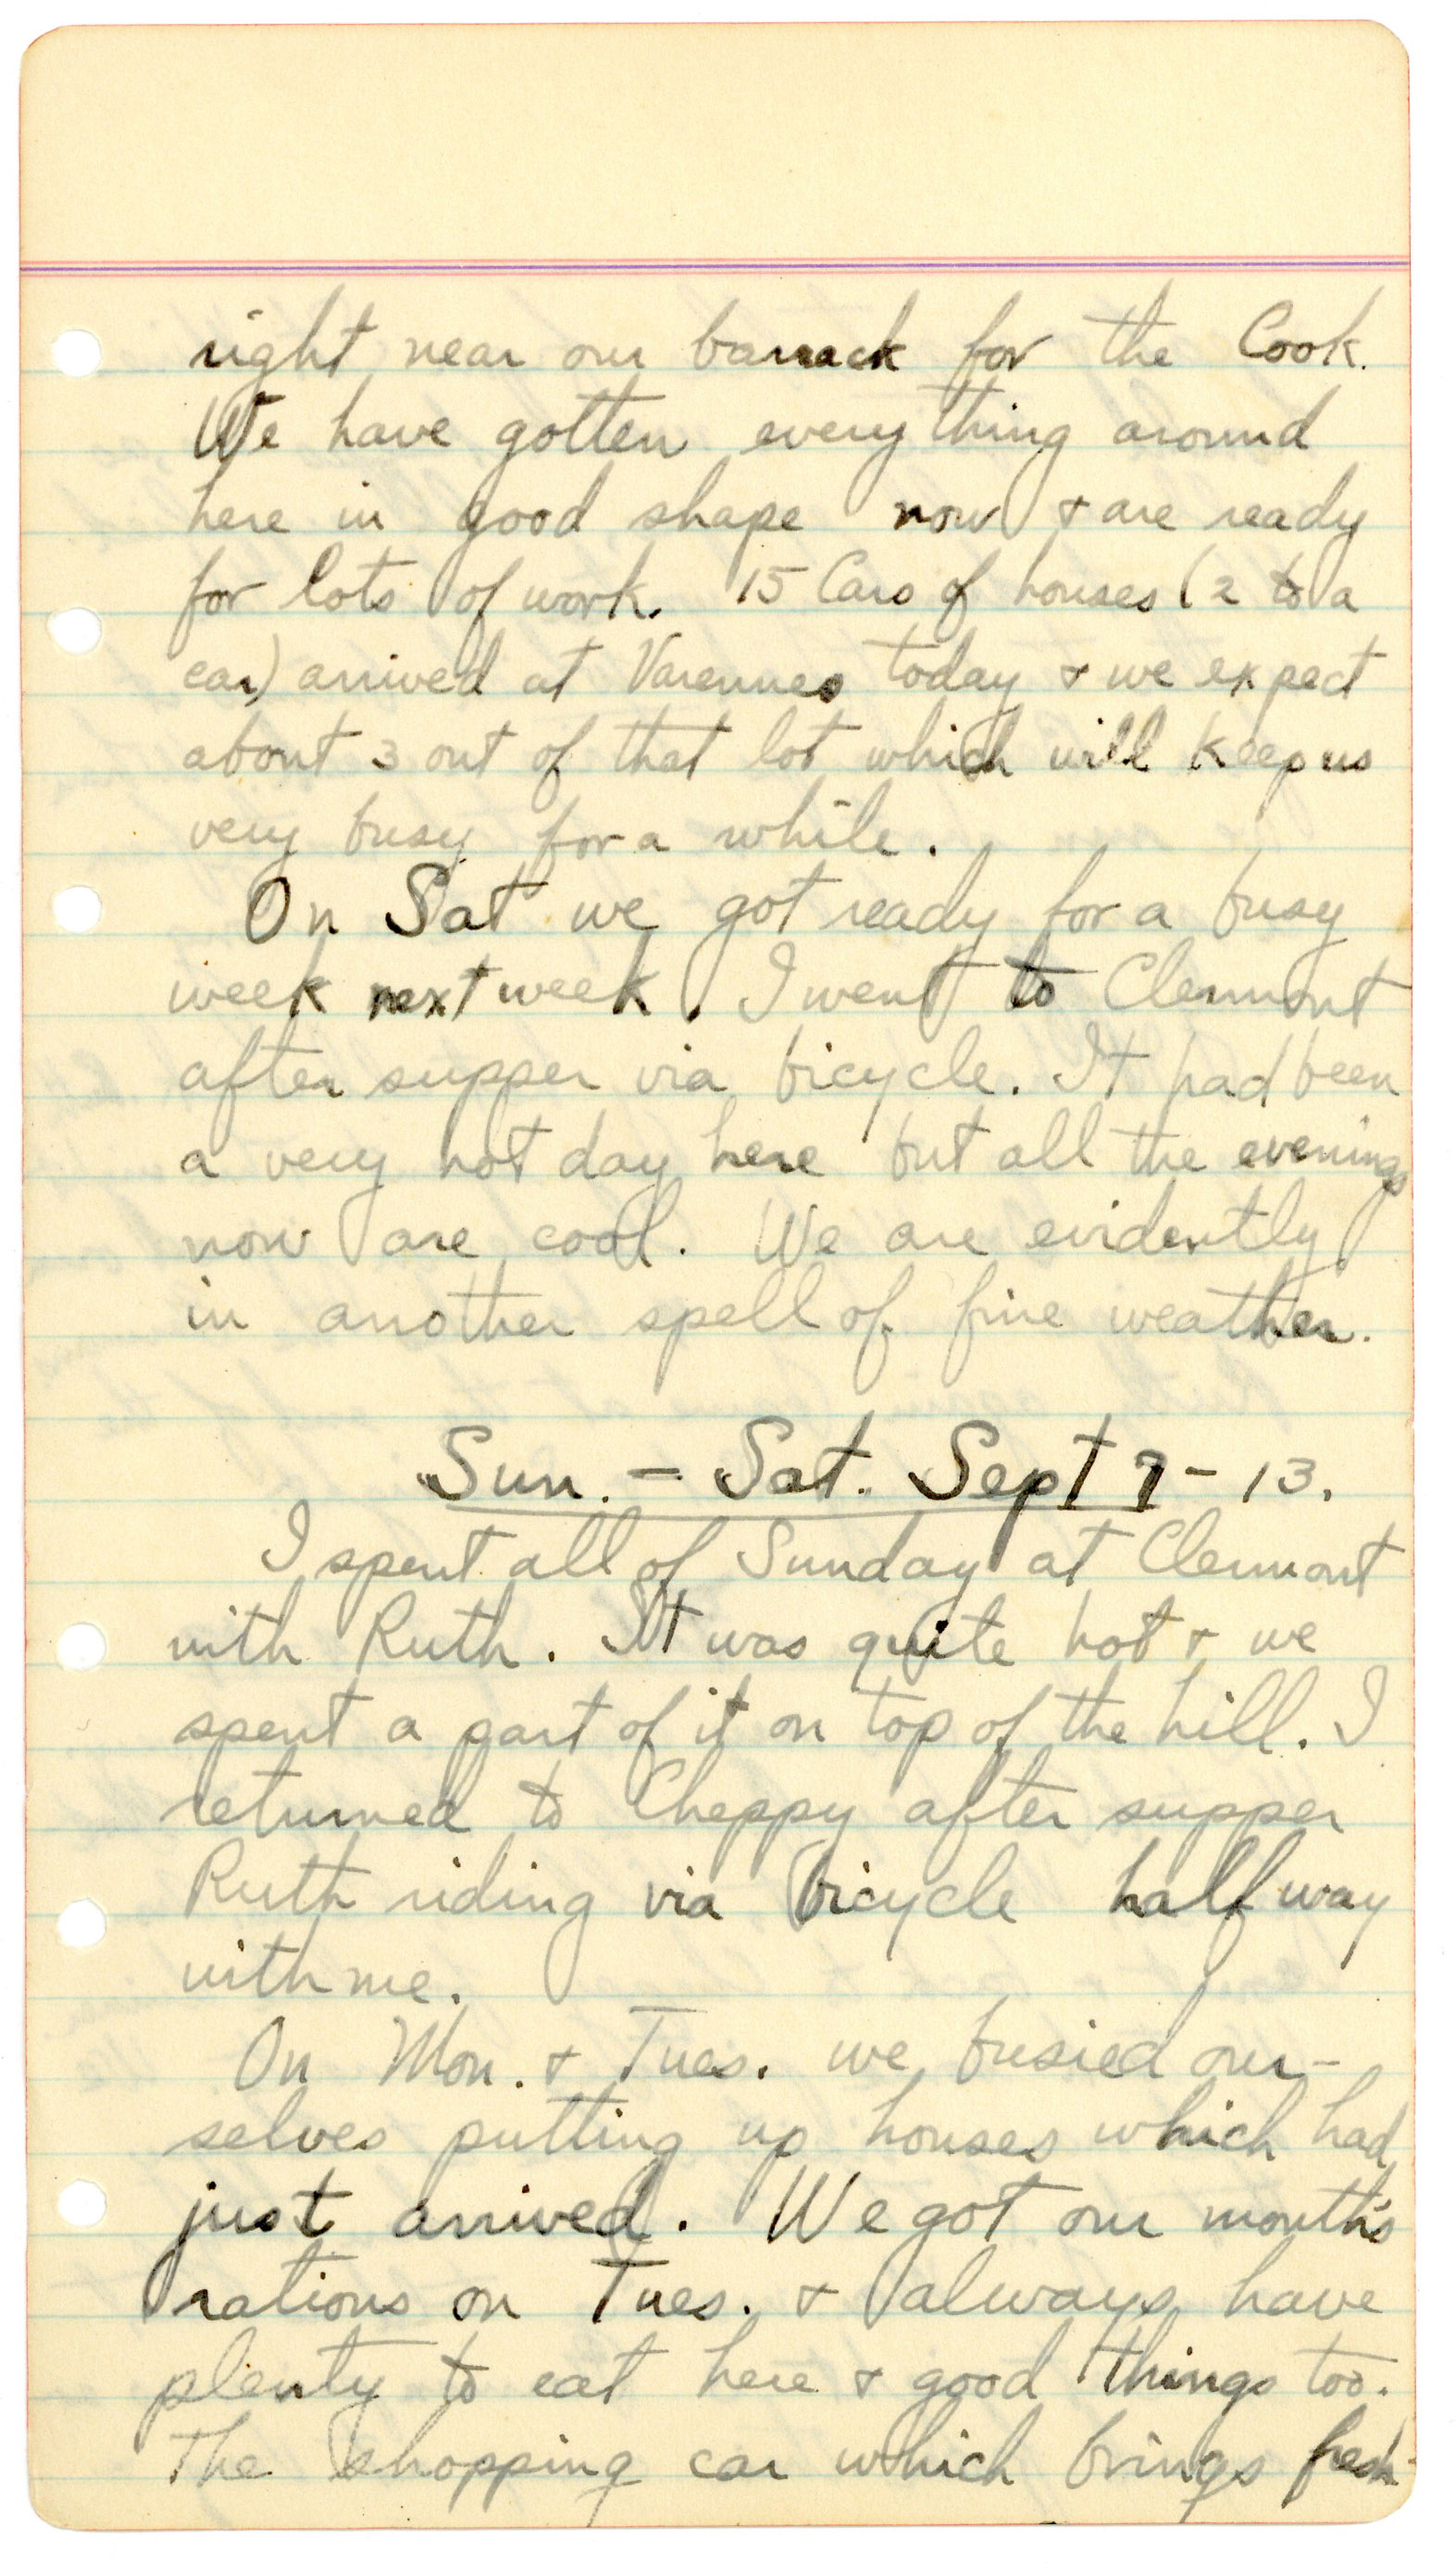 right near our barrack for the Cook.
We have gotten everything around
here in good shape now + are ready
for lots of work. 15 Cars of houses (2 to a
car) arrived at Varennes today + we expect
about 3 out of that lot which will keep us
very busy for a while.
On Sat we got ready for a busy
week next week. I went to Clermont
after supper via bicycle. It had been
a very hot day here but all the evenings
now are cool. We are evidently
in another spell of fine weather.
Sun. - Sat. Sept 7 - 13.
I spent all of Sunday at Clermont
with Ruth. It was quite hot + we
spent a part of it on top of the hill. I
returned to Cheppy after supper
Ruth riding via bicycle half way
with me.
On Mon. + Tues. we busied our-
selves putting up houses which had
just arrived. We got our month's
rations on Tues. + always have
plenty to eat here + good things too.
The shopping car which brings fresh